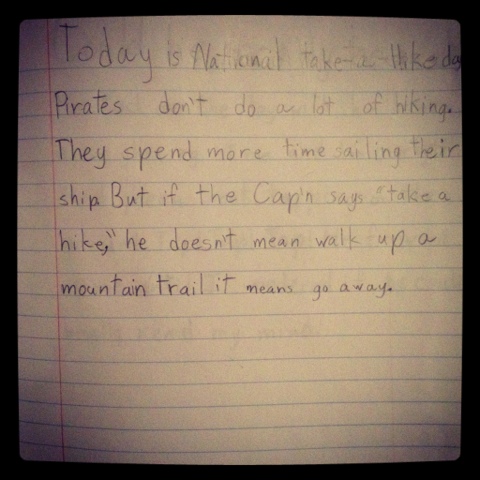 Today is National take-a-Hike day
Pirates don't do a lot of hiking.
They spend more time sailing their
ship But if the Cap'n says "take a
hike," he doesn't mean walk up a
mountain trail it means go away.